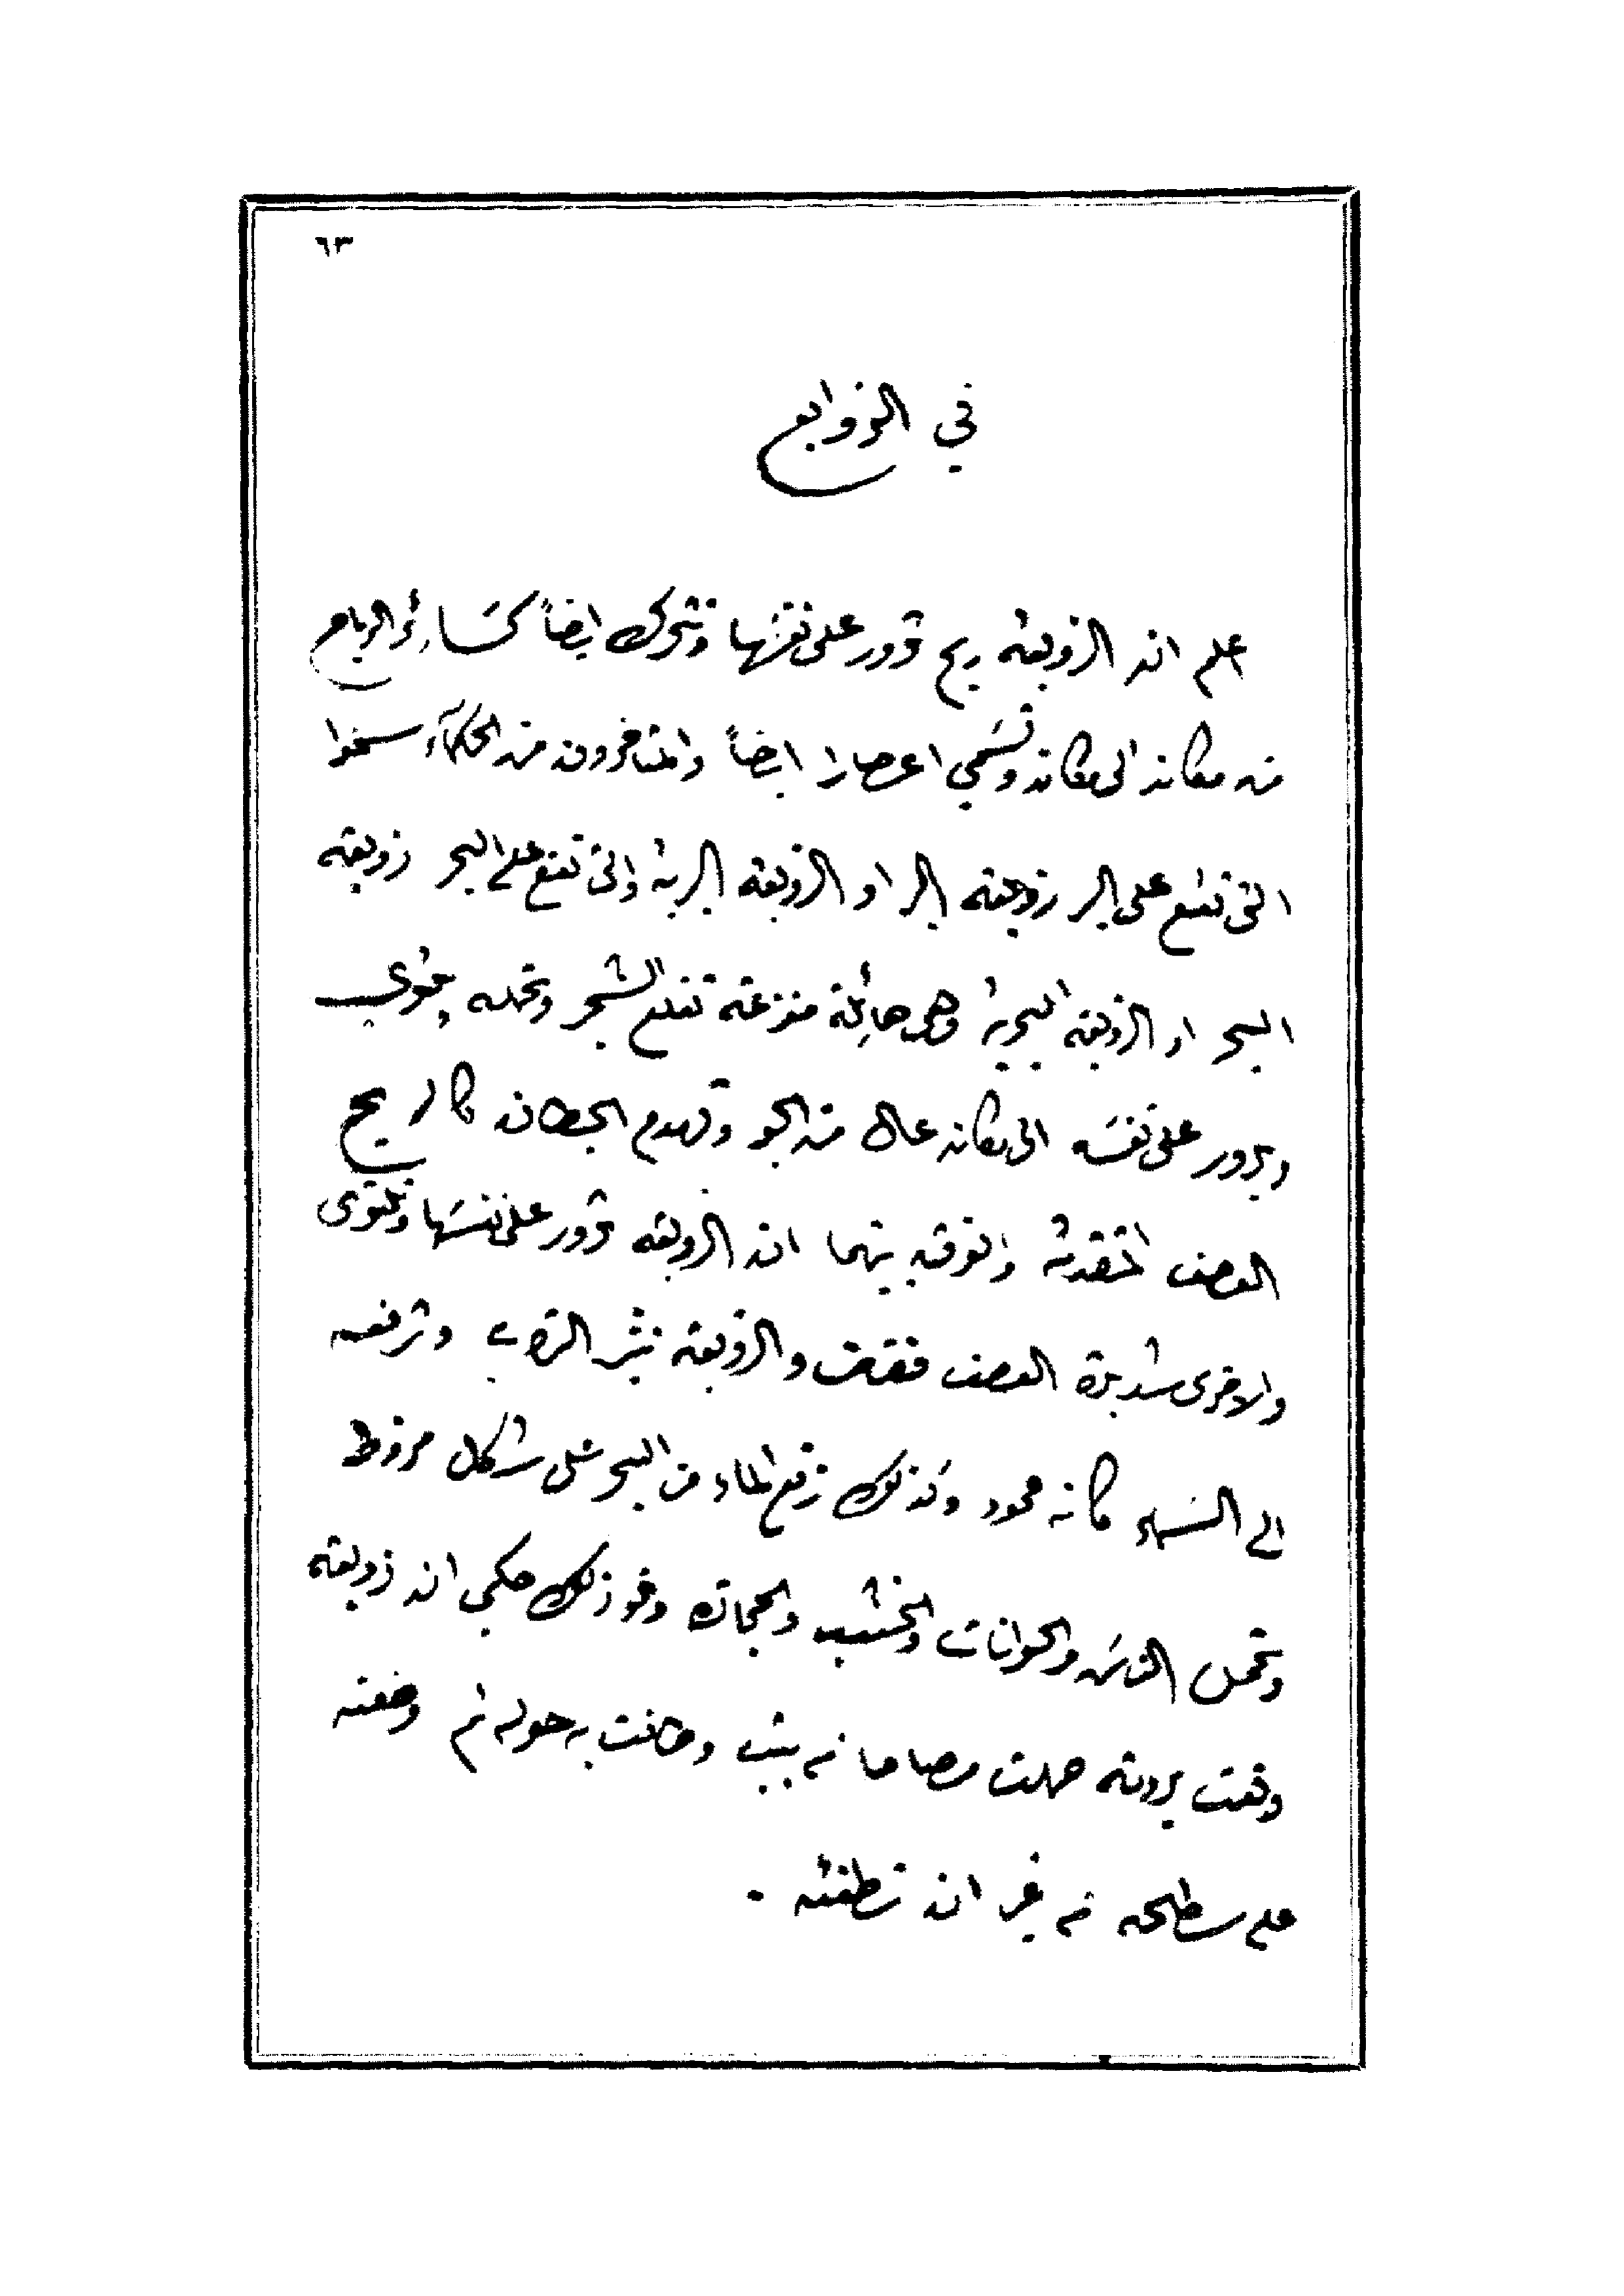 ٦٣
في الزوابع
اعلم ان الزوبعة ريح تدور على نفسها وتتحرك ايضاً كسَائر الرياح
من مكان الى مكان وتسَمي اعصارا ايضاً والمتاخرون من الحكمآء سموا
التي تقع على البر زوبعة البر او الزوبعة البرية والتي تقع على البحر زوبعة
البحر او الزوبعة البحرية وهي هائلة مفزعة تقلع الشجر وتحمله
ويدور على نفسَه الى مكان عال من الجو وتهدم الحيطان كالريح
العصف المتقدمة والفرق بينهما ان الزوبعة تدور على نفسَها وتلتوى
والاخرى شديدة العصف فقط والزوبعة تثير التراب وترفعه
الى السَماء كانه عمود وكذلك ترفع الماء من البحر على شكل مخروط
وتحمل الناسَ والحيوانات والخشب والحجارة ونحو ذلك حكي ان زوبعة
وقعت برومة حملت مصباحا من بيت وطافت به حوله ثم وضعته
على سطحه من غير ان تطفئه .